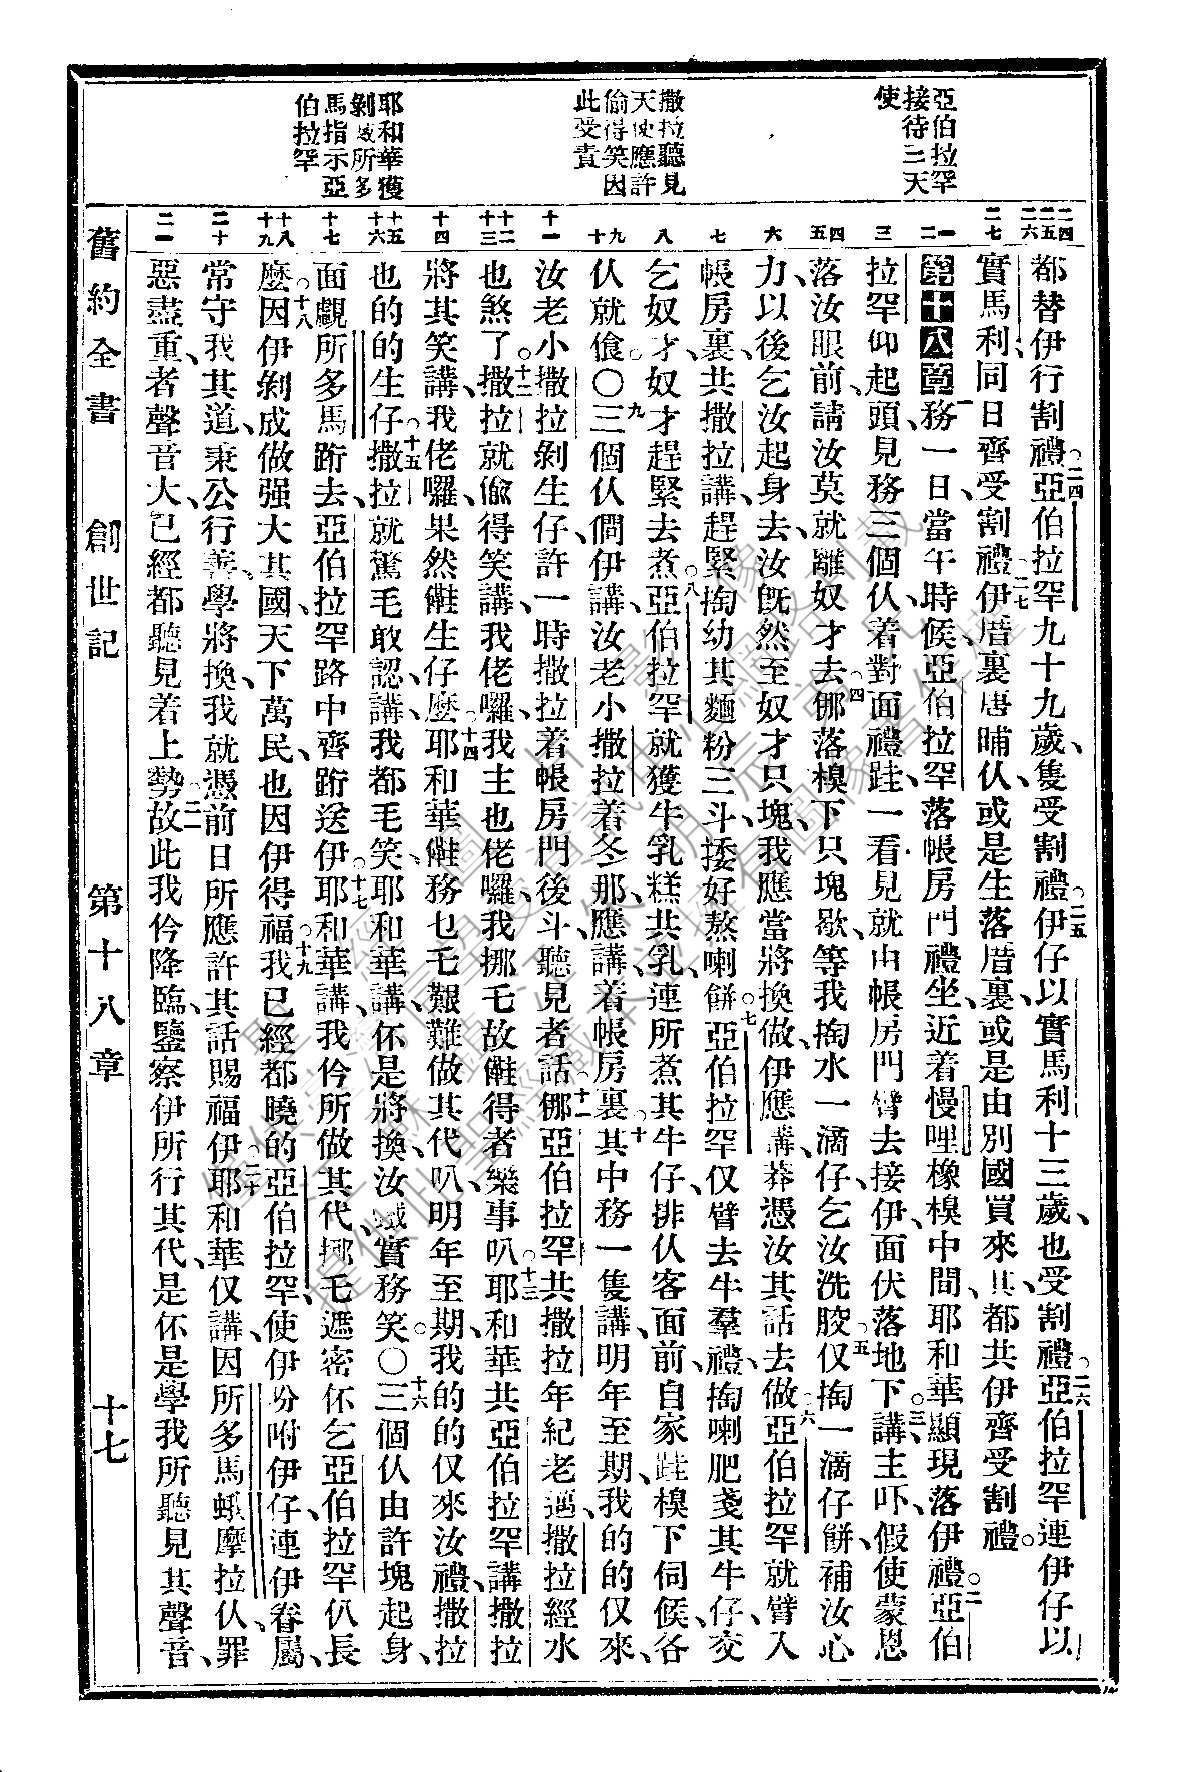 亞伯拉罕
接待三天
使
撒拉聽見
天使應許
偷得笑因
此受責
耶和華獲
剝滅所多
馬指示亞
伯拉罕
二四 二五 二六
都替伊行割禮。二四亞伯拉罕九十九歲、隻受割禮。二五伊仔以實馬利十三歲、也受割禮。二六亞伯拉罕連伊仔以
二七
實馬利、同日齊受割禮。二七伊厝裏唐晡仈、或是生落厝裏、或是由別國買來其、都共伊齊受割禮。
一 二
第十八章 一務一日、當午時候、亞伯拉罕落帳房門禮坐、近着慢哩橡模中間、耶和華顯現落伊禮。二亞伯
三
拉罕仰起頭、見務三個仈、着對面禮跬、一看見就由帳房門臂去接伊、面伏落地下。三講、主吓、假使蒙恩
四 五
落汝眼前、請汝莫就離奴才去。四㑚落模下只塊歇、等我掏水一滴仔、乞汝洗骹。五仅掏一滴仔餅、補汝心
六
力、以後乞汝起身去、汝旣然至奴才只塊、我應當將換做、伊應講、莽憑汝其話去做。六亞伯拉罕就臂入
七
帳房裏、共撒拉講、趕緊掏幼其麵粉三斗、捼好熬喇餅。七亞伯拉罕仅臂去牛羣禮、掏喇肥戔其牛仔、交
八
乞奴才、奴才趕緊去煮。八亞伯拉罕就獲牛乳糕共乳、連所煮其牛仔、排仈客面前、自家跬模下伺候、各
九 十
仈就飡。〇九三個仈、僩伊講、汝老小撒拉着冬那、應講、着帳房裏。十其中務一隻講、明年至期、我的的仅來、
十一
汝老小撒拉剝生仔、許一時撒拉着帳房門後斗聽見者話。十一㑚亞伯拉罕共撒拉年紀老邁、撒拉經水
十二 十三
也煞了。十二撒拉就偸得笑講、我佬囉、我主也佬囉、我挪乇故𣍐得者樂事叭。十三耶和華共亞伯拉罕講、撒拉
十四
將其笑講、我佬囉、果然𣍐生仔麼。十四耶和華𣍐務乜乇艱難做其代叭、明年至期、我的的仅來汝禮、撒拉
十五 十六
也的的生仔。十五撒拉就驚毛敢認、講、我都毛笑、耶和華講、伓是將換、汝誠實務笑。〇十六三個仈由許塊起身、
十七
面覷所多馬跡去、亞伯拉罕路中齊跡送伊。十七耶和華講、我仱所做其代、挪毛遮密伓乞亞伯拉罕仈長
十八 十九
麼。十八因伊剝成做强大其國、天下萬民也因伊得福。十九我已經都曉的亞伯拉罕、使伊吩咐伊仔連伊眷屬、
二十
常守我其道、秉公行善、學將換、我就憑前日所應許其話賜福伊。二十耶和華仅講、因所多馬蛾摩拉仈罪
二一
惡盡重、者聲音大、已經都聽見着上勢。二一故此我仱降臨、鑒察伊所行其代、是伓是學我所聽見其聲音、
舊約全書 創世記 第十八章 十七